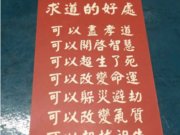 求道的好處
可以盡孝道
可以開啓智慧
可以超生了死
可以改變命運
可以躲災避劫
可以改變氣質